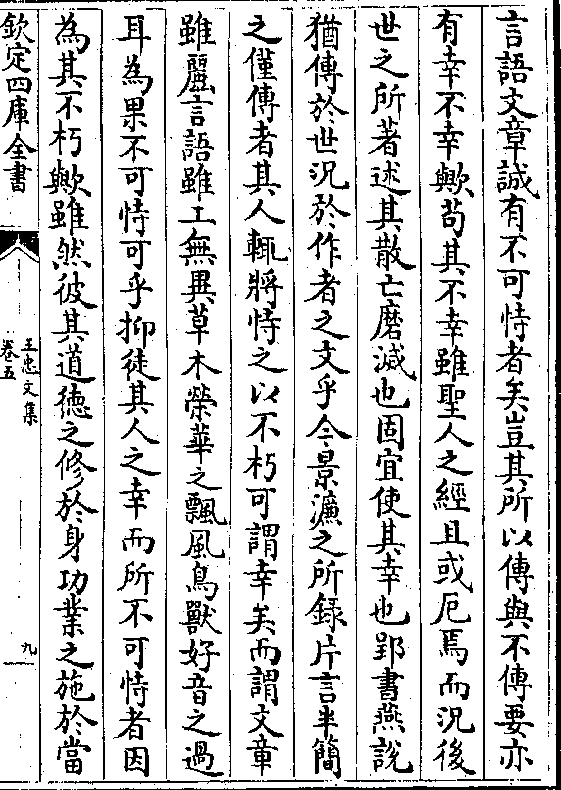 言語文章誠有不可恃者矣豈其所以傳與不傳要亦
有幸不幸歟苟其不幸雖聖人之經且或厄焉而況後
世之所著述其散亡磨滅也固宜使其幸也郢書燕說
猶傳於世況於作者之文乎今景濂之所録片言半簡
之僅傳者其人輒將恃之以不朽可謂幸矣而謂文章
雖麗言語雖工無異草木榮華之飄風鳥獸好音之過
耳為果不可恃可乎抑徒其人之幸而所不可恃者因
為其不朽歟雖然彼其道徳之修於身功業之施於當
欽定四庫全書
王忠文集
卷五
九